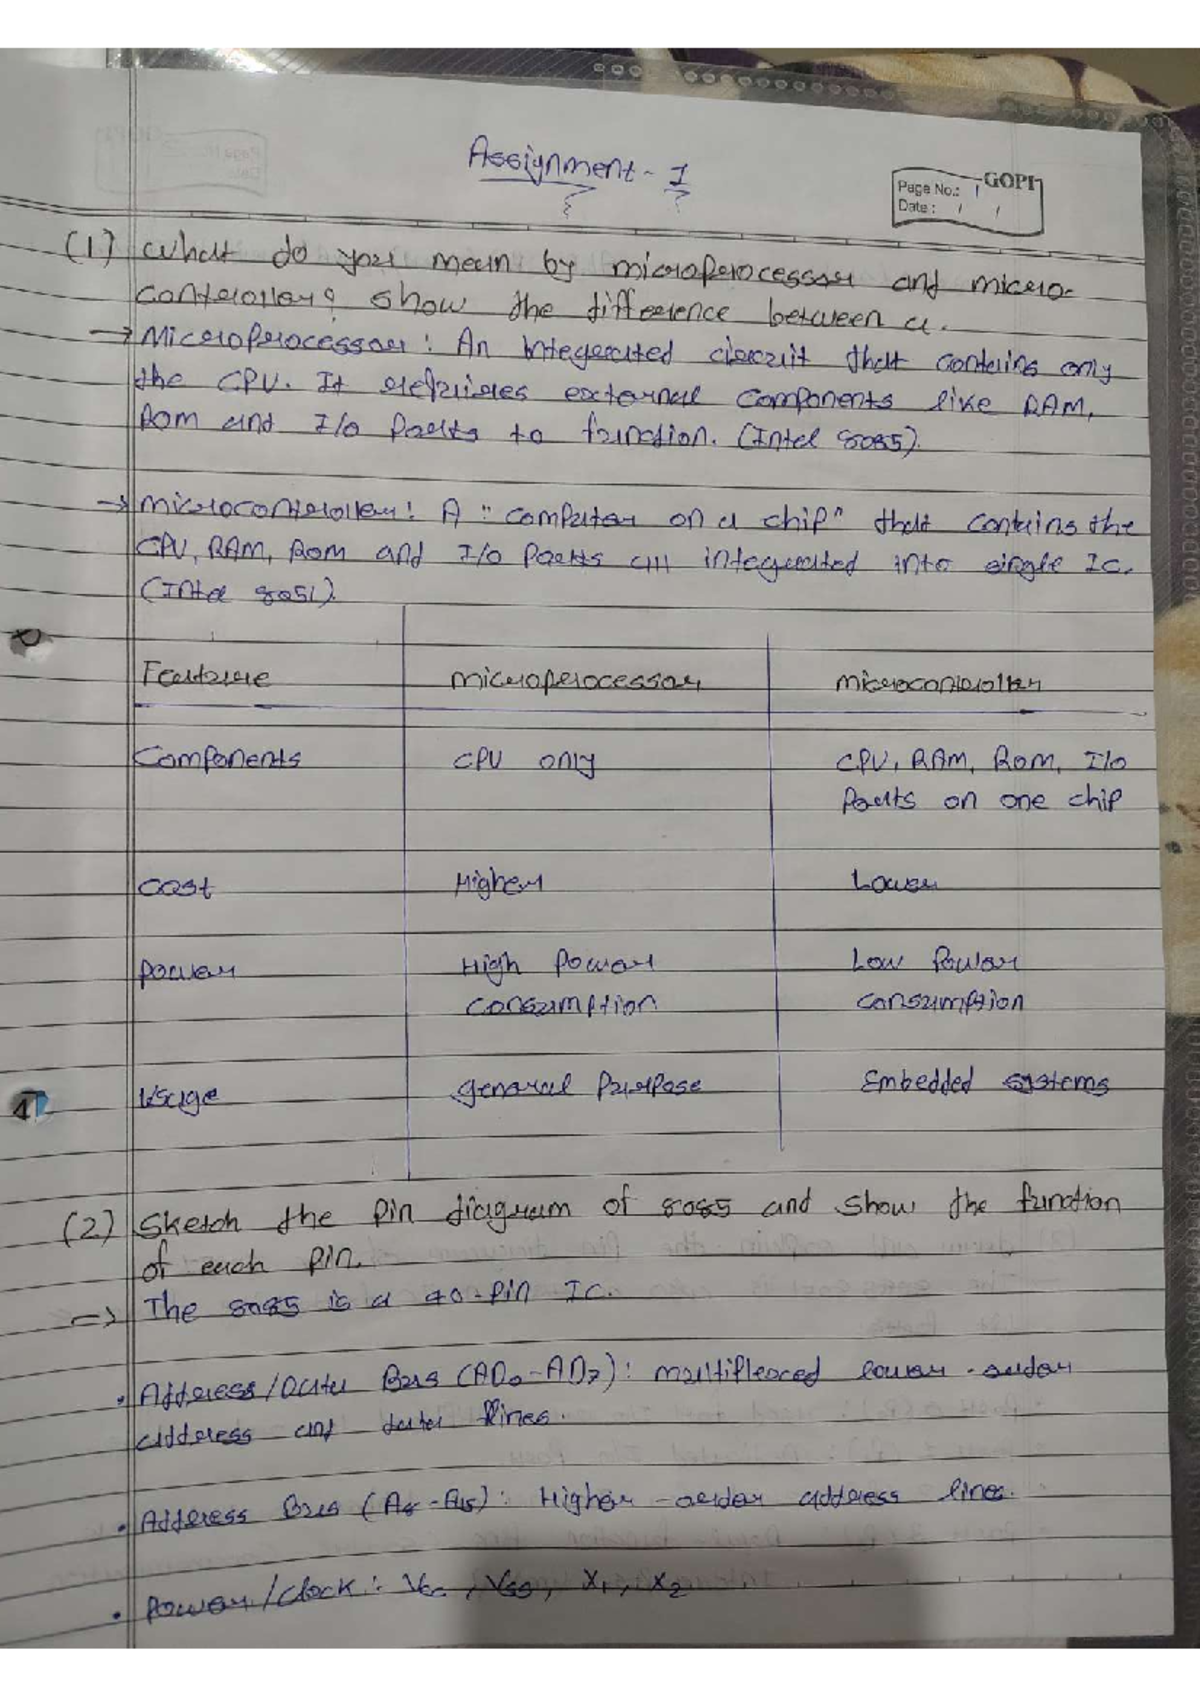 Assignment - 1
GOPI
Page No.: 1
Date: / /
(1) What do you mean by microprocessor and micro-
controller? show the difference between a.
→ Microprocessor: An integrated circuit that contains only
the CPU. It requires external components like RAM,
Rom and I/o Ports to function. (Intel 8085).
→ microcontroller: A "computer on a chip" that contains the
CPU, RAM, Rom and I/o Ports all integrated into single Ic.
(Intel 8051).
Feature microprocessor microcontroller
Components CPU only CPU, RAM, Rom, I/o
Ports on one chip
cost Higher Lower
power High Power Low Power
consumption consumption
Usage general Purpose Embedded systems
(2) Sketch the Pin diagram of 8085 and show the function
of each Pin.
=> The 8085 is a 40-Pin Ic.
• Address/Data Bus (AD0-AD7): multiplexed lower-order
address and data lines.
• Address Bus (A8-A15): Higher-order address lines.
• Power/clock: Vcc, Vss, X1, X2